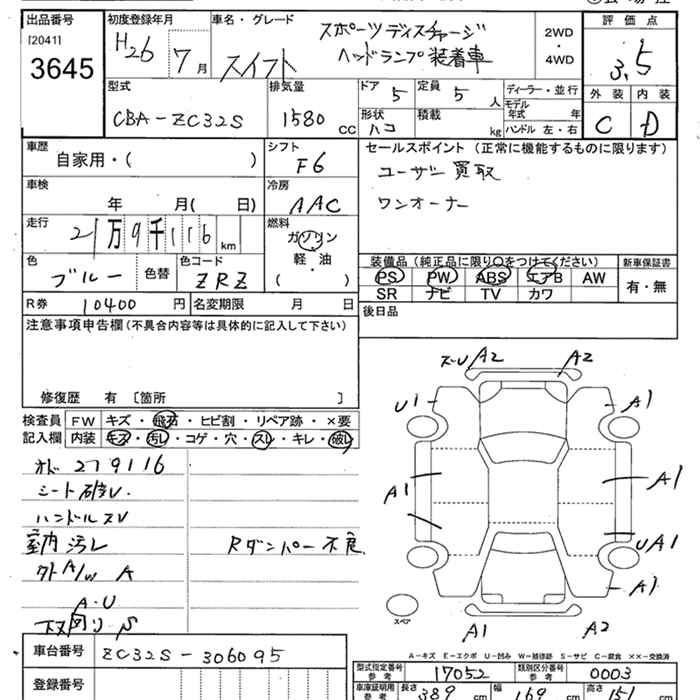 出品番号
[2041]
3645
初度登録年月
H26 7月
車名・グレード
スイフト
スポーツ ディスチャージ
ヘッドランプ 装着車
2WD
・
4WD
評価点
3.5
外装 内装
C D
型式
CBA-ZC32S
排気量
1580 cc
ドア 5
定員 5 人
形状 ハコ
積載 kg
ディーラー・並行
モデル年式 年
ハンドル 左・右
車歴
自家用・( )
シフト
F6
車検
年 月( 日)
冷房
AAC
走行
21万9千116 km
燃料
ガソリン
軽・油
( )
色
ブルー
色替
色コード
ZRZ
R券 10400 円
名変期限 月 日
セールスポイント (正常に機能するものに限ります)
ユーザー買取
ワンオーナー
装備品 (純正品に限り○をつけてください)
PS PW ABS エアB AW
SR ナビ TV カワ
新車保証書
有・無
後日品
注意事項申告欄 (不具合内容等は具体的に記入して下さい)
修復歴 有 〔箇所 〕
検査員記入欄
FW キズ・飛石・ヒビ割・リペア跡・×要
内装 キズ・汚レ・コゲ・穴・スレ・キレ・破レ
オド 219116
シート破レ
ハンドルスレ
室内汚レ
Rダンパー不良
外A/W A
A・U
下回り S
ズレU A2
A2
U1
A1
A1
A1
UA1
A1
A1
A2
スペア
A-キズ E-エクボ U-凹み W-補修跡 S-サビ C-腐食 ××-交換済
車台番号
ZC32S-306095
登録番号
型式指定番号 参考
17052
類別区分番号 参考
0003
車庫証明用 参考
長さ 389 cm
幅 169 cm
高さ 151 cm